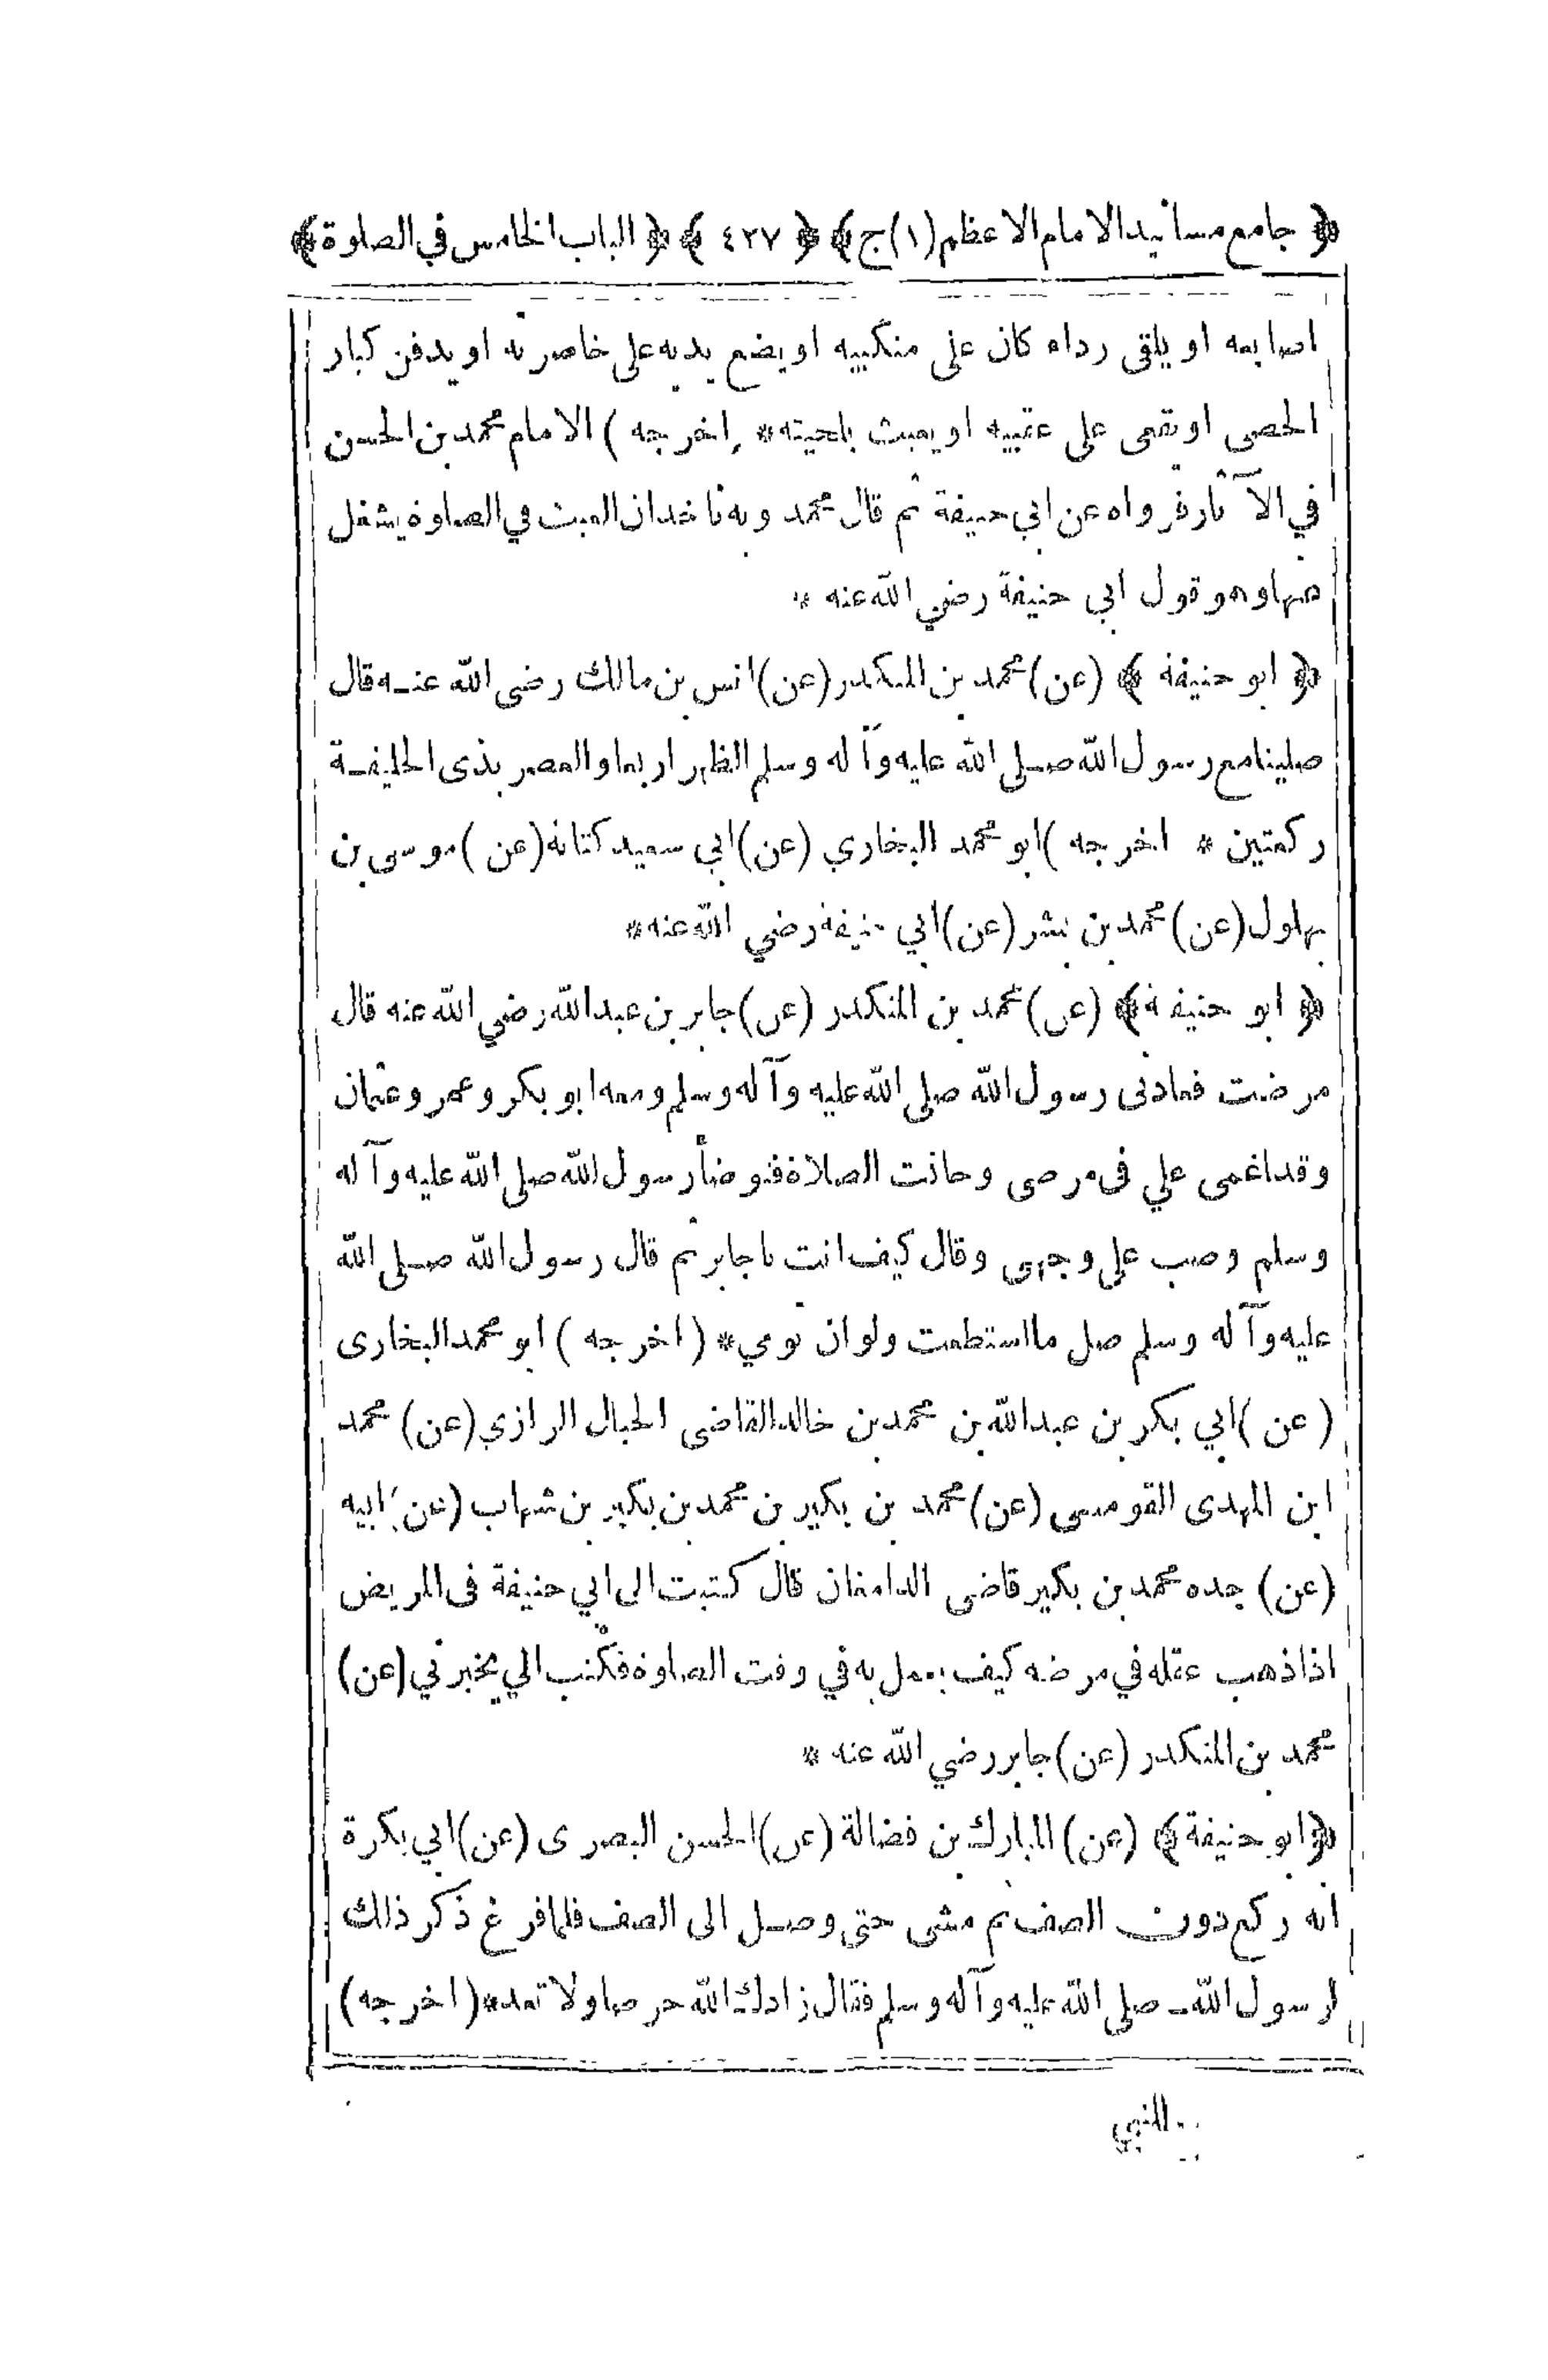 ﴿ جامع مسانيد الامام الاعظم (١) ج ﴾ ﴿ ٤٢٧ ﴾ ﴿ الباب الخامس في الصلوة ﴾
اصابعه او يلقى رداه كان على منكبيه او يضع يديه على خاصرته او يدفن كبار
الحصى او تقعى على عقبيه او يعبث بلحيته * اخرجه ) الامام محمد بن الحسن
في الآثار فرواه عن ابي حنيفة ثم قال محمد وبه ناخذ ان العبث في الصلوة يشغل
عنها وهو قول ابي حنيفة رضي الله عنه *
﴿ ابو حنيفة ﴾ (عن) محمد بن المنكدر (عن) انس بن مالك رضى الله عنه قال
صلينا مع رسول الله صلى الله عليه وآله وسلم الظهر اربعا والعصر بذى الحليفة
ركعتين * اخرجه ) ابو محمد البخاري (عن) ابي سعيد كتابة (عن) موسى بن
بهلول (عن) محمد بن بشر (عن) ابي حنيفة رضي الله عنه *
﴿ ابو حنيفة ﴾ (عن) محمد بن المنكدر (عن) جابر بن عبدالله رضي الله عنه قال
مرضت فعادنى رسول الله صلى الله عليه وآله وسلم ومعه ابو بكر وعمر وعثمان
وقد اغمى علي فى مرضى وحانت الصلاة فتوضأ رسول الله صلى الله عليه وآله
وسلم وصب على وجهى وقال كيف انت يا جابر ثم قال رسول الله صلى الله
عليه وآله وسلم صل ما استطعت ولو ان تومي * ( اخرجه ) ابو محمد البخارى
( عن ) ابي بكر بن عبدالله بن محمد بن خالد القاضى الحبال الرازي (عن) محمد
ابن المهدى القومسى (عن) محمد بن بكير بن محمد بن بكير بن شهاب (عن) ابيه
(عن) جده محمد بن بكير قاضى الدامغان قال كتبت الى ابي حنيفة فى المريض
اذا ذهب عقله في مرضه كيف يعمل به في وقت الصلوة فكتب الي يخبرني (عن)
محمد بن المنكدر (عن) جابر رضي الله عنه *
﴿ ابو حنيفة ﴾ (عن) المبارك بن فضالة (عن) الحسن البصرى (عن) ابي بكرة
انه ركع دون الصف ثم مشى حتى وصل الى الصف فلما فرغ ذكر ذلك
لرسول الله صلى الله عليه وآله وسلم فقال زادك الله حرصا ولا تعد * ( اخرجه )
للنبي